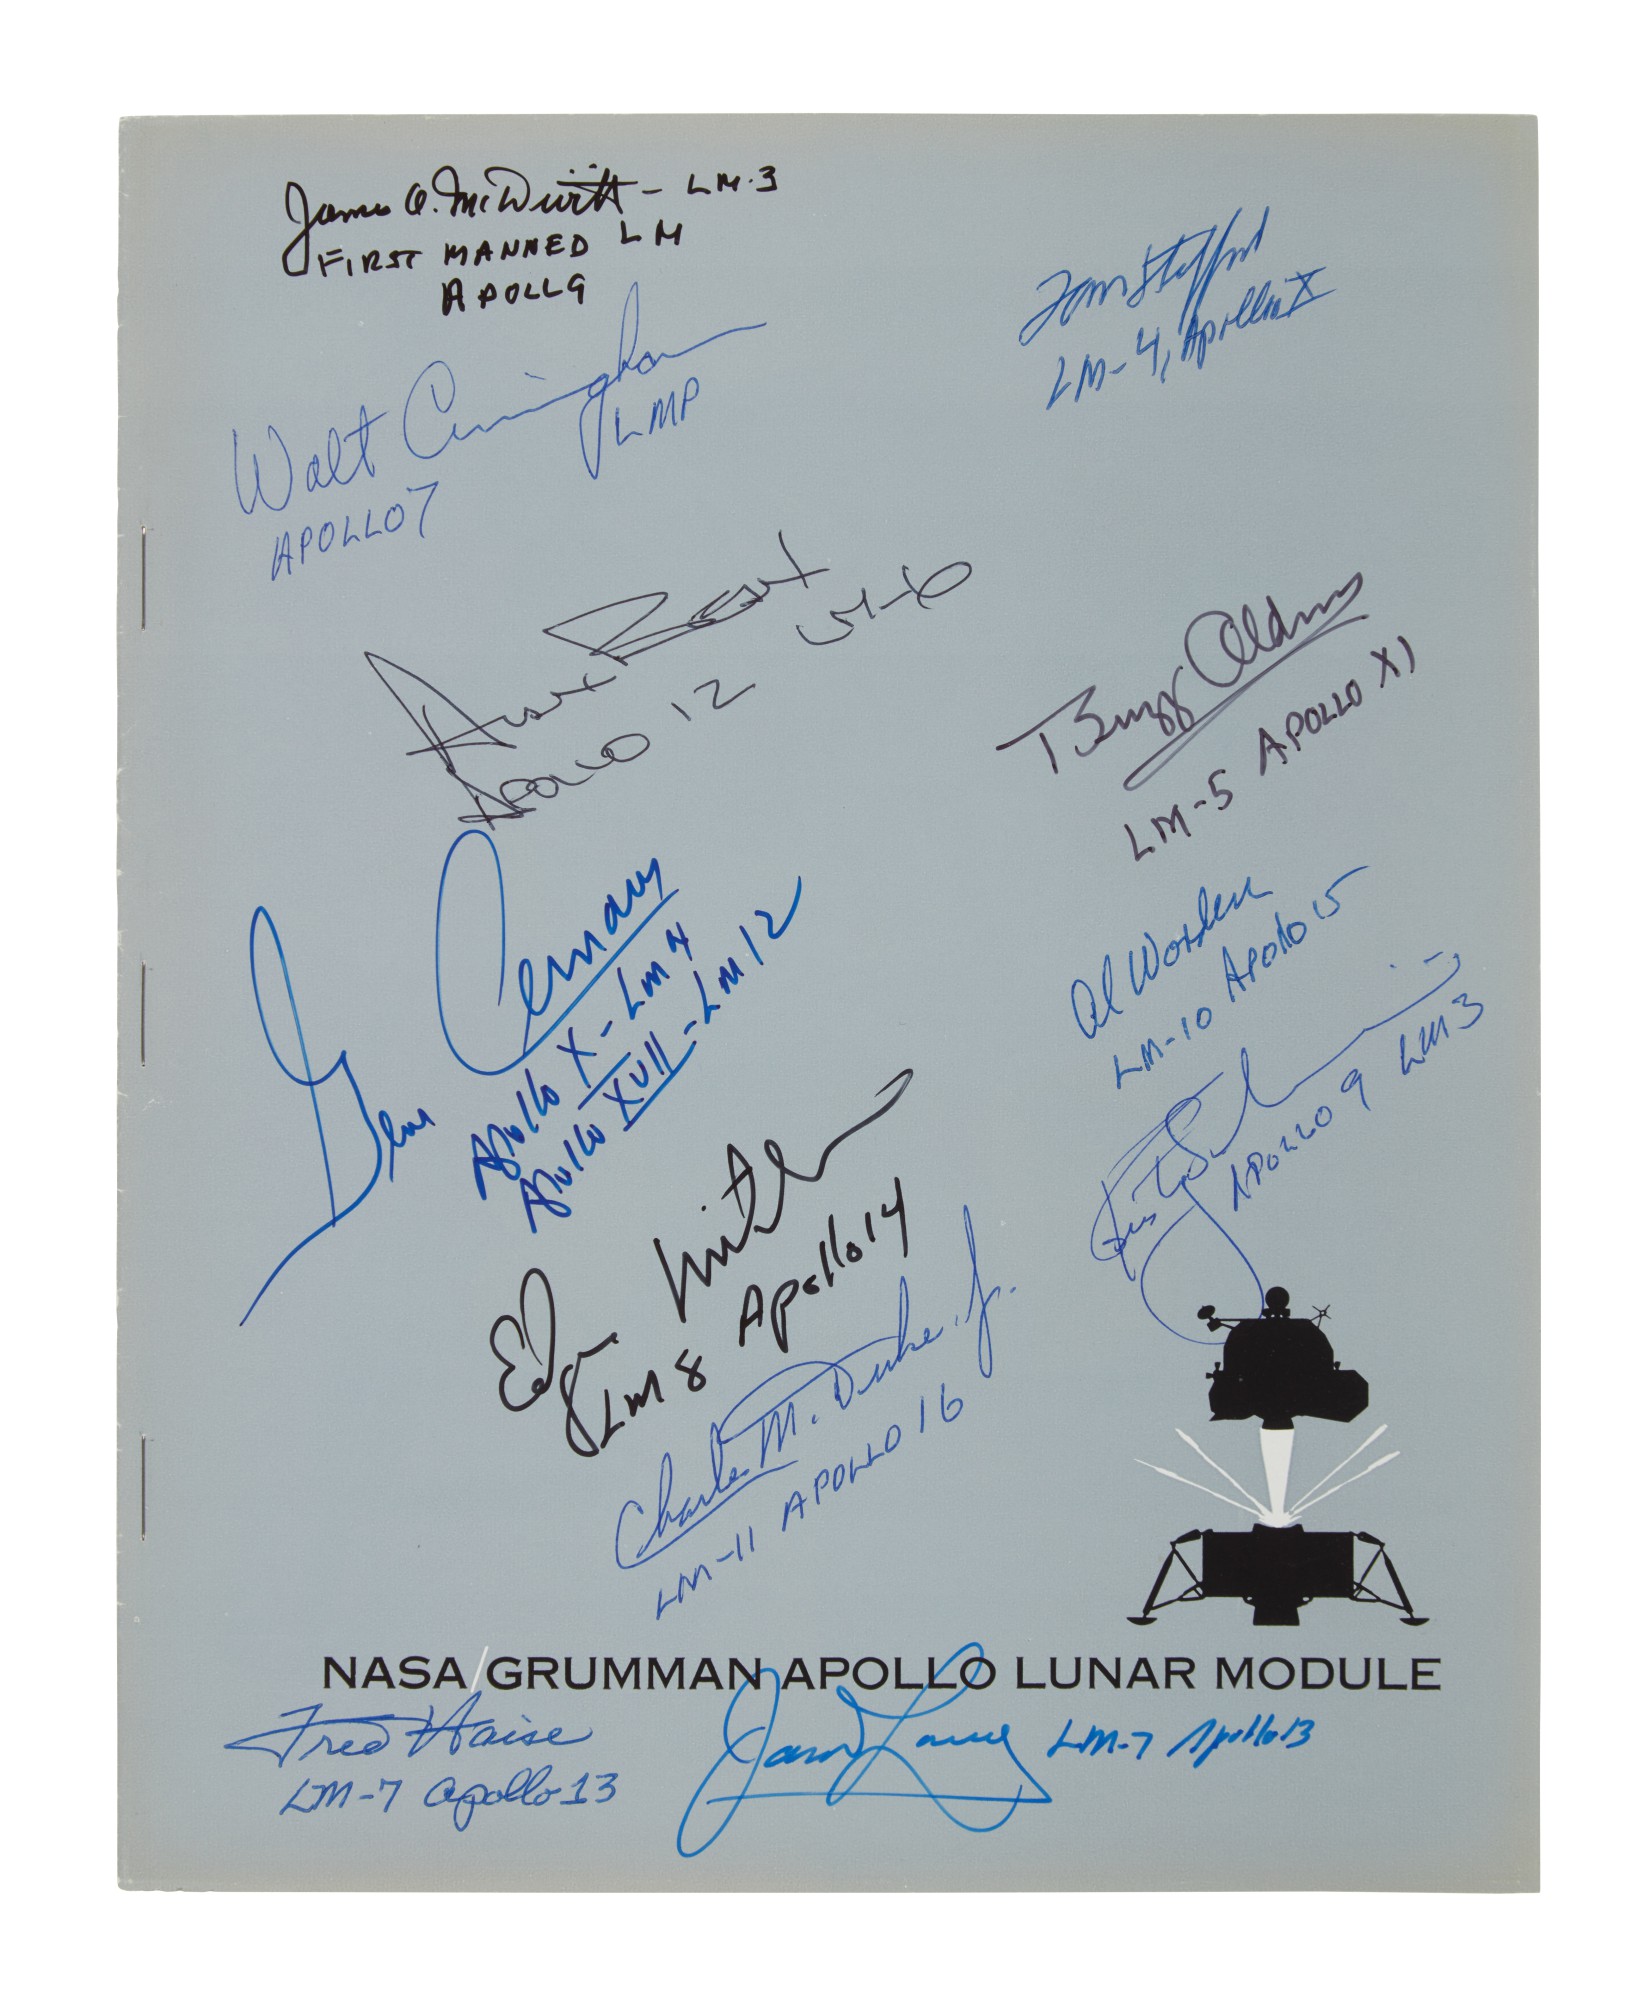 James A. McDivitt - LM-3
FIRST MANNED LM
APOLL9
Tom Stafford
LM-4, Apollo X
Walt Cunningham
LMP
APOLLO 7
Alan Bean LM-6
APOLLO 12
Buzz Aldrin
LM-5 APOLLO XI
Gene Cernan
Apollo X - LM 4
Apollo XVII - LM 12
Al Worden
LM-10 Apollo 15
APOLLO 9 LM 3
Edgar Mitchell
LM 8 Apollo 14
Charles M. Duke, Jr.
LM-11 APOLLO 16
NASA/GRUMMAN APOLLO LUNAR MODULE
Fred Haise
LM-7 Apollo 13
James Lovell LM-7 Apollo 13